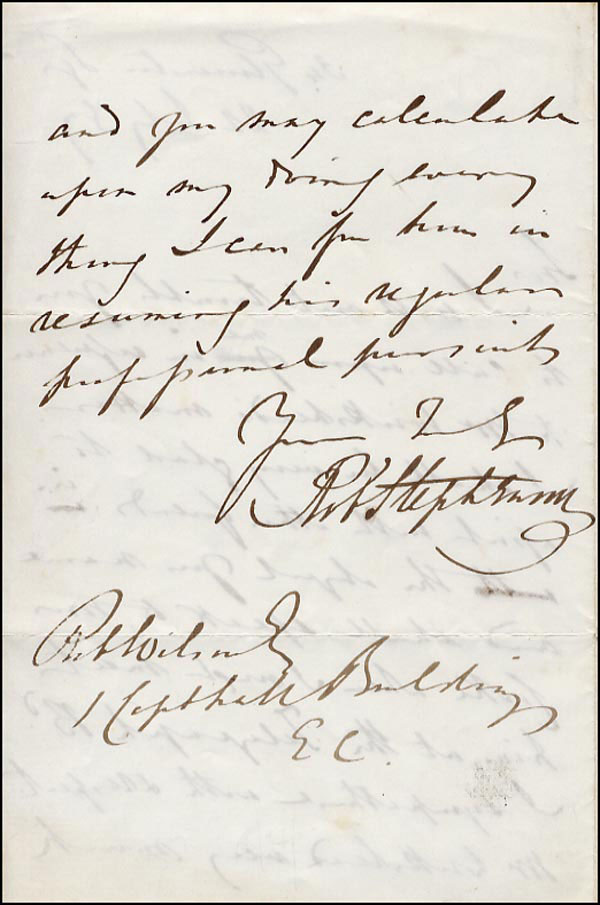 and you may calculate
upon my doing every
thing I can for him in
resuming his regular
professional pursuits
Yours
Robt Stephenson
Robt Wilson Esq
1 Copthall Buildings
E C.